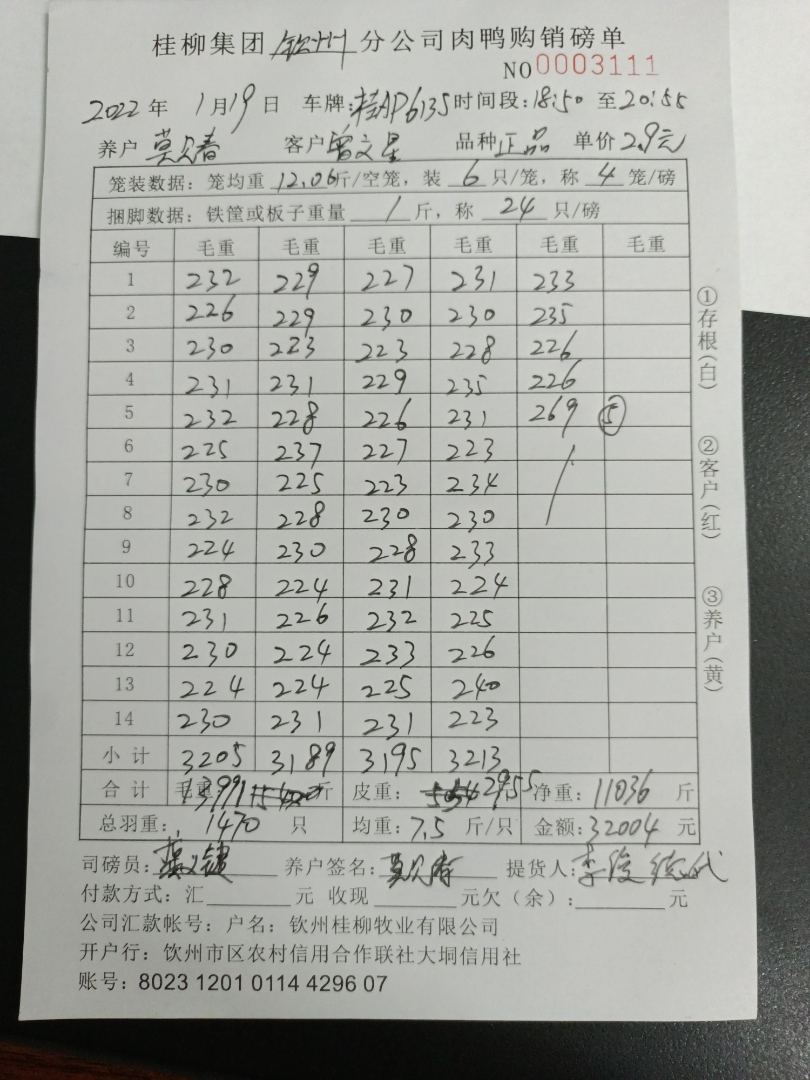 桂柳集团 钦州 分公司肉鸭购销磅单
NO 0003111
2022 年 1 月 19 日 车牌:桂AP6135 时间段:18:50 至 20:55
养户 莫只春 客户 曾文星 品种 正品 单价 2.9元
笼装数据: 笼均重 12.06 斤/空笼, 装 6 只/笼, 称 4 笼/磅
捆脚数据: 铁筐或板子重量 1 斤, 称 24 只/磅
编号 毛重 毛重 毛重 毛重 毛重 毛重
1 232 229 227 231 233
2 226 229 230 230 235
3 230 223 223 228 226
4 231 231 229 235 226
5 232 228 226 231 269 ⑤
6 225 237 227 223
7 230 225 223 234
8 232 228 230 230
9 224 230 228 233
10 228 224 231 224
11 231 226 232 225
12 230 224 233 226
13 224 224 225 240
14 230 231 231 223
小计 3205 3189 3195 3213
合计 毛重: 13991 斤 皮重: 2955 净重: 11036 斤
总羽重: 1470 只 均重: 7.5 斤/只 金额: 32004 元
司磅员: 养户签名: 提货人: 李
付款方式: 汇 元 收现 元欠(余): 元
公司汇款帐号: 户名: 钦州桂柳牧业有限公司
开户行: 钦州市区农村信用合作联社大垌信用社
账号: 8023 1201 0114 4296 07
①存根(白)
②客户(红)
③养户(黄)